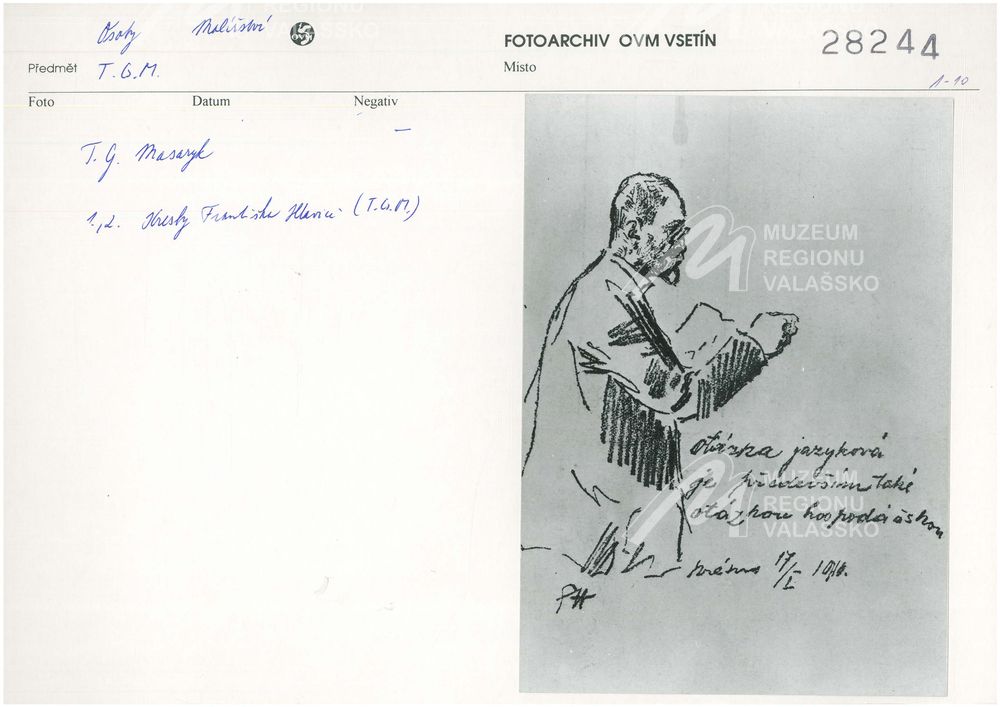 Osoby Malířství
OVM
FOTOARCHIV OVM VSETÍN
28244
Předmět T.G.M.
Místo
1-10
Foto Datum Negativ
–
T. G. Masaryk
1.,2. Kresby Františka Hlavici (T.G.M.)
MUZEUM
REGIONU
VALAŠSKO
otázka jazyková
je především také
otázkou hospodářskou
MUZEUM
REGIONU
VALAŠSKO
Krásno 17/I
FH
REGIONU
VALAŠSKO